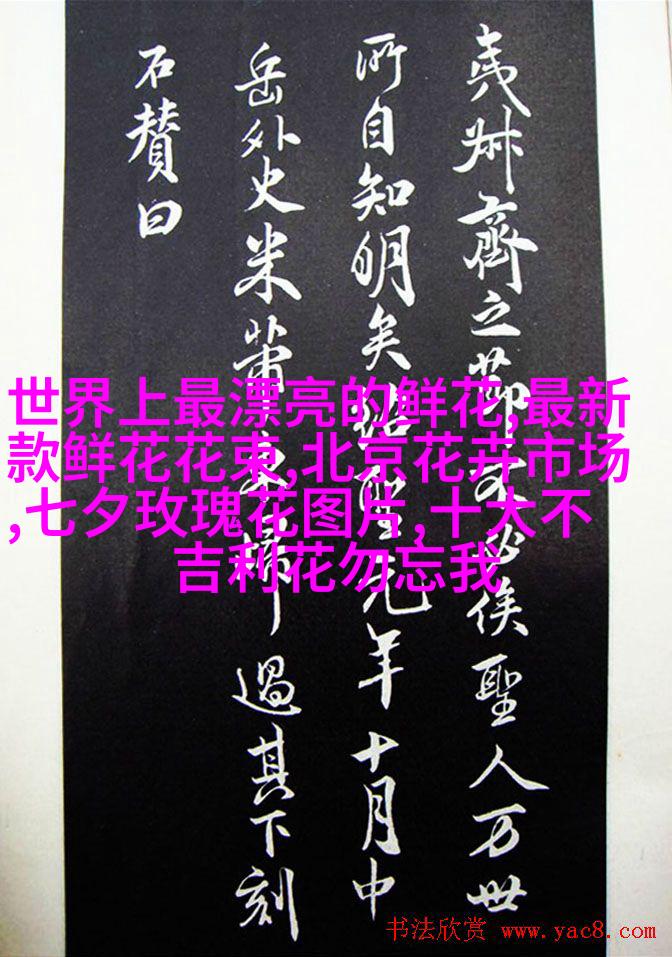 夷叔齊之節不必俟聖人万世
所自知明矣紹聖元年十月中
岳外史米芾東歸過其下刻
石賛曰
世界上最漂亮的鲜花,最新
款鲜花花束,北京花卉市场
,七夕玫瑰花图片,十大不
吉利花勿忘我
书法欣赏 www.yac8.com